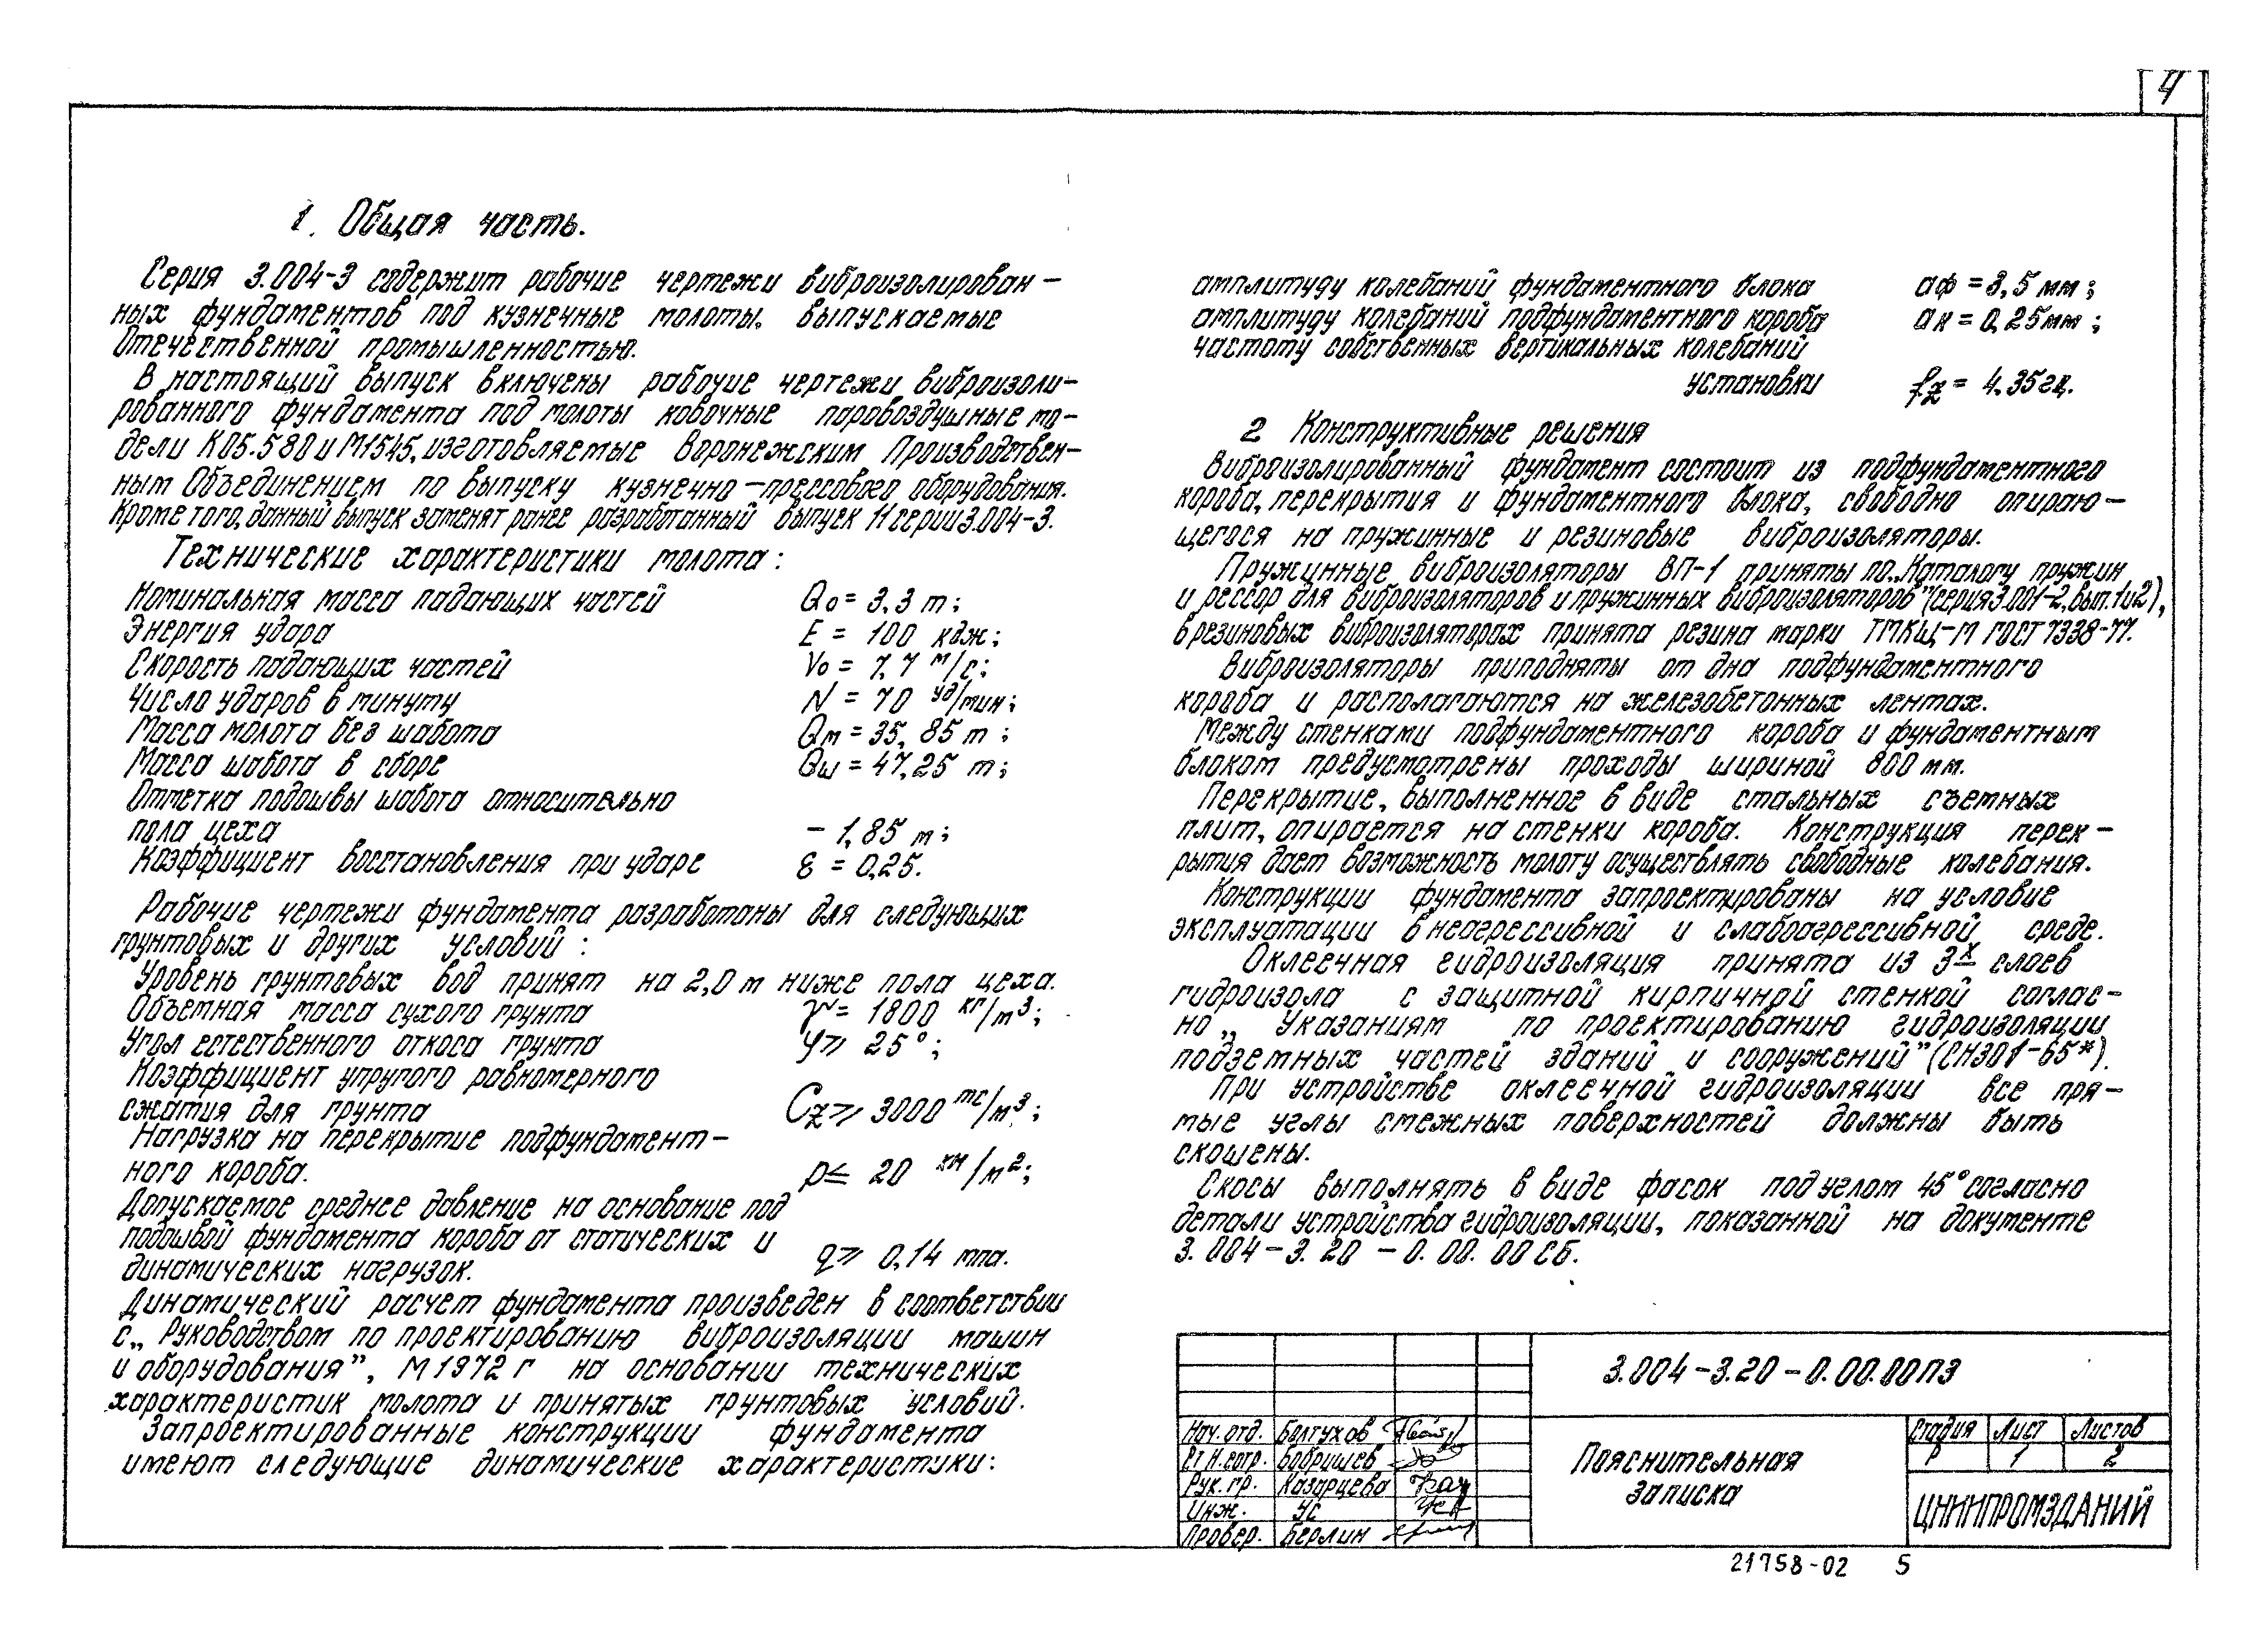 4
1. Общая часть.
Серия 3.004-3 содержит рабочие чертежи виброизолирован-
ных фундаментов под кузнечные молоты, выпускаемые
Отечественной промышленностью.
В настоящий выпуск включены рабочие чертежи виброизоли-
рованного фундамента под молоты ковочные паровоздушные мо-
дели К05.580 и М1545, изготовляемые Воронежским Производствен-
ным Объединением по выпуску кузнечно-прессового оборудования.
Кроме того, данный выпуск заменят ранее разработанный выпуск 11 серии 3.004-3.
Технические характеристики молота:
Номинальная масса падающих частей Qо = 3,3 т;
Энергия удара E = 100 кдж;
Скорость падающих частей Vо = 7,7 м/с;
Число ударов в минуту N = 70 уд/мин;
Масса молота без шабота Qм = 35,85 т;
Масса шабота в сборе Qш = 47,25 т;
Отметка подошвы шабота относительно
пола цеха - 1,85 м;
Коэффициент восстановления при ударе ε = 0,25.
Рабочие чертежи фундамента разработаны для следующих
грунтовых и других условий:
Уровень грунтовых вод принят на 2,0 м ниже пола цеха.
Объемная масса сухого грунта γ = 1800 кг/м³;
Угол естественного откоса грунта φ ⩾ 25°;
Коэффициент упругого равномерного
сжатия для грунта Cz ⩾ 3000 тс/м³;
Нагрузка на перекрытие подфундамент-
ного короба. p ⩽ 20 кн/м²;
Допускаемое среднее давление на основание под
подошвой фундамента короба от статических и
динамических нагрузок. q ⩾ 0,14 мпа.
Динамический расчет фундамента произведен в соответствии
с „Руководством по проектированию виброизоляции машин
и оборудования”, М 1972 г на основании технических
характеристик молота и принятых грунтовых условий.
Запроектированные конструкции фундамента
имеют следующие динамические характеристики:
амплитуду колебаний фундаментного блока аф = 3,5 мм;
амплитуду колебаний подфундаментного короба ак = 0,25мм;
частоту собственных вертикальных колебаний
установки fz = 4,35гц.
2 Конструктивные решения
Виброизолированный фундамент состоит из подфундаментного
короба, перекрытия и фундаментного блока, свободно опираю-
щегося на пружинные и резиновые виброизоляторы.
Пружинные виброизоляторы ВП-1 приняты по „Каталогу пружин
и рессор для виброизоляторов и пружинных виброизоляторов” (серия 3.001-2, вып. 1 и 2),
в резиновых виброизоляторах принята резина марки ТМКЩ-М ГОСТ 7338-77.
Виброизоляторы приподняты от дна подфундаментного
короба и располагаются на железобетонных лентах.
Между стенками подфундаментного короба и фундаментным
блоком предусмотрены проходы шириной 800 мм.
Перекрытие, выполненное в виде стальных съемных
плит, опирается на стенки короба. Конструкция перек-
рытия дает возможность молоту осуществлять свободные колебания.
Конструкции фундамента запроектированы на условие
эксплуатации в неагрессивной и слабоагрессивной среде.
Оклеечная гидроизоляция принята из 3х слоев
гидроизола с защитной кирпичной стенкой соглас-
но „Указаниям по проектированию гидроизоляции
подземных частей зданий и сооружений” (СН301-65*).
При устройстве оклеечной гидроизоляции все пря-
мые углы смежных поверхностей должны быть
скошены.
Скосы выполнять в виде фасок под углом 45° согласно
детали устройства гидроизоляции, показанной на документе
3.004-3.20-0.00.00СБ.
3.004-3.20-0.00.00ПЗ
Нач. отд. Болтухов
Ст н.сотр. Бобрищев
Рук. гр. Казарцева
Инж. Ус
Провер. Берлин
Пояснительная
записка
Стадия Лист Листов
Р 1 2
ЦНИИПРОМЗДАНИЙ
21758-02 5